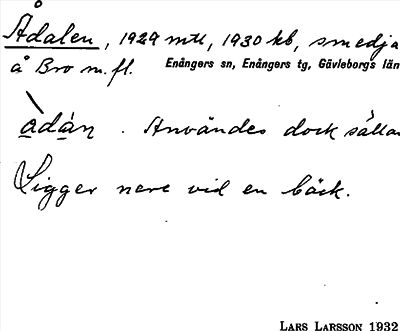 Ådalen, 1929 mtl, 1930 kb, smedja
å Bro m.fl. Enångers sn, Enångers tg, Gävleborgs län
ådán. Användes dock sällan
Ligger nere vid en bäck.
LARS LARSSON 1932